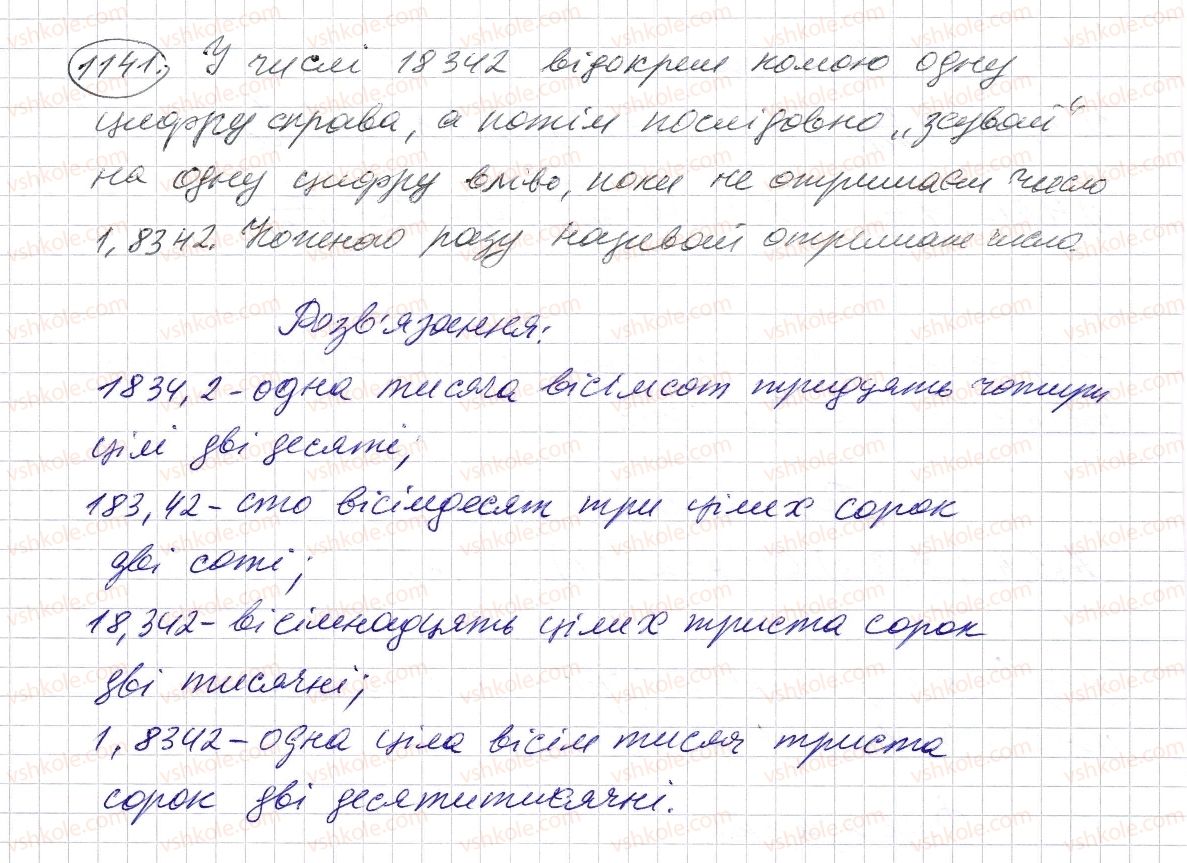 1141. У числі 18342 відокрем комою одну
цифру справа, а потім послідовно „зсувай“
на одну цифру вліво, поки не отримаєш число
1,8342. Кожного разу називай отримане число.
Розв'язання:
1834,2 - одна тисяча вісімсот тридцять чотири
цілі дві десяті;
183,42 - сто вісімдесят три цілих сорок
дві соті;
18,342 - вісімнадцять цілих триста сорок
дві тисячні;
1,8342 - одна ціла вісім тисяч триста
сорок дві десятитисячні.